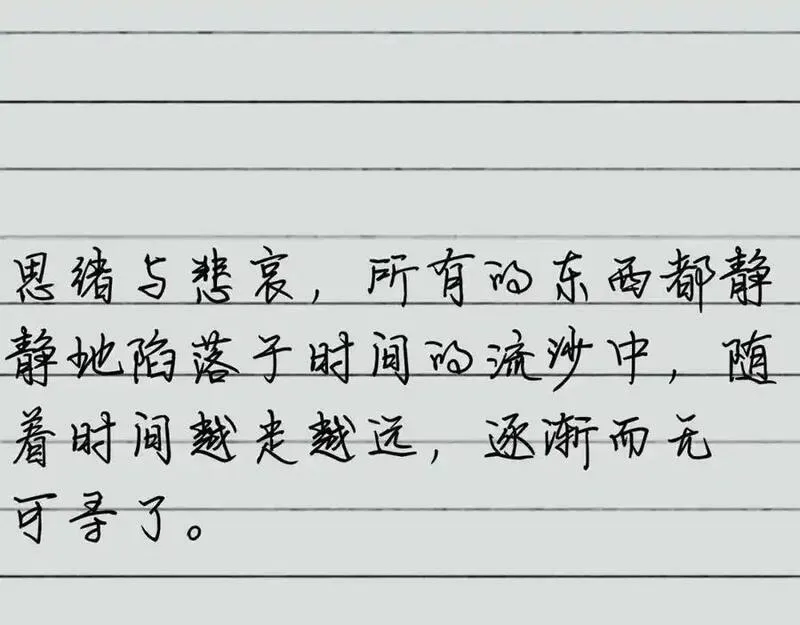 思绪与悲哀，所有的东西都静
静地陷落于时间的流沙中，随
着时间越走越远，逐渐而无
可寻了。